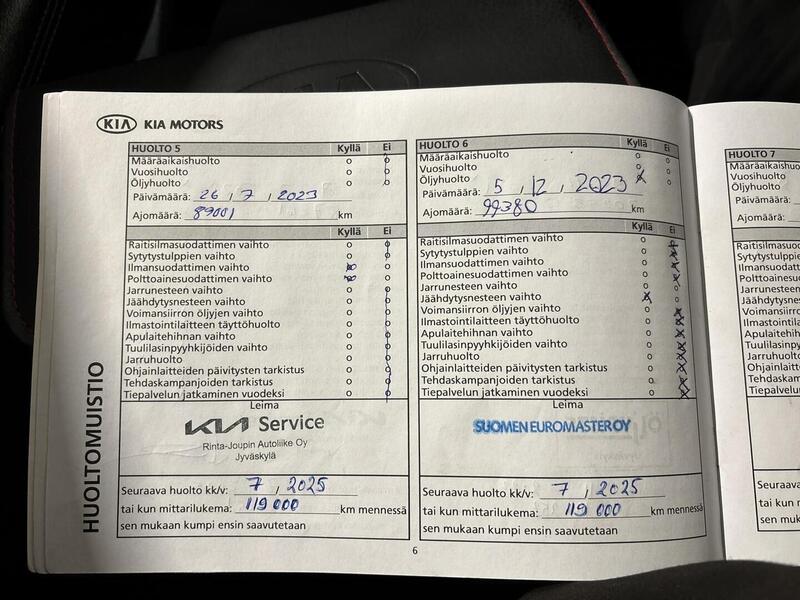 KIA KIA MOTORS
HUOLTO 5 Kyllä Ei
Määräaikaishuolto
Vuosihuolto
Öljyhuolto
Päivämäärä: 26 / 7 / 2023
Ajomäärä: 89001 km
Kyllä Ei
Raitisilmasuodattimen vaihto
Sytytystulppien vaihto
Ilmansuodattimen vaihto
Polttoainesuodattimen vaihto
Jarrunesteen vaihto
Jäähdytysnesteen vaihto
Voimansiirron öljyjen vaihto
Ilmastointilaitteen täyttöhuolto
Apulaitehihnan vaihto
Tuulilasinpyyhkijöiden vaihto
Jarruhuolto
Ohjainlaitteiden päivitysten tarkistus
Tehdaskampanjoiden tarkistus
Tiepalvelun jatkaminen vuodeksi
Leima
KIA Service
Rinta-Joupin Autoliike Oy
Jyväskylä
Seuraava huolto kk/v: 7 / 2025
tai kun mittarilukema: 119 000 km mennessä
sen mukaan kumpi ensin saavutetaan
HUOLTO 6 Kyllä Ei
Määräaikaishuolto
Vuosihuolto
Öljyhuolto
Päivämäärä: 5 / 12 / 2023
Ajomäärä: 99380 km
Kyllä Ei
Raitisilmasuodattimen vaihto
Sytytystulppien vaihto
Ilmansuodattimen vaihto
Polttoainesuodattimen vaihto
Jarrunesteen vaihto
Jäähdytysnesteen vaihto
Voimansiirron öljyjen vaihto
Ilmastointilaitteen täyttöhuolto
Apulaitehihnan vaihto
Tuulilasinpyyhkijöiden vaihto
Jarruhuolto
Ohjainlaitteiden päivitysten tarkistus
Tehdaskampanjoiden tarkistus
Tiepalvelun jatkaminen vuodeksi
Leima
SUOMEN EUROMASTER OY
Seuraava huolto kk/v: 7 / 2025
tai kun mittarilukema: 119 000 km mennessä
sen mukaan kumpi ensin saavutetaan
HUOLTO 7
Määräaikaishuolto
Vuosihuolto
Öljyhuolto
Päivämäärä:
Ajomäärä:
HUOLTOMUISTIO
6